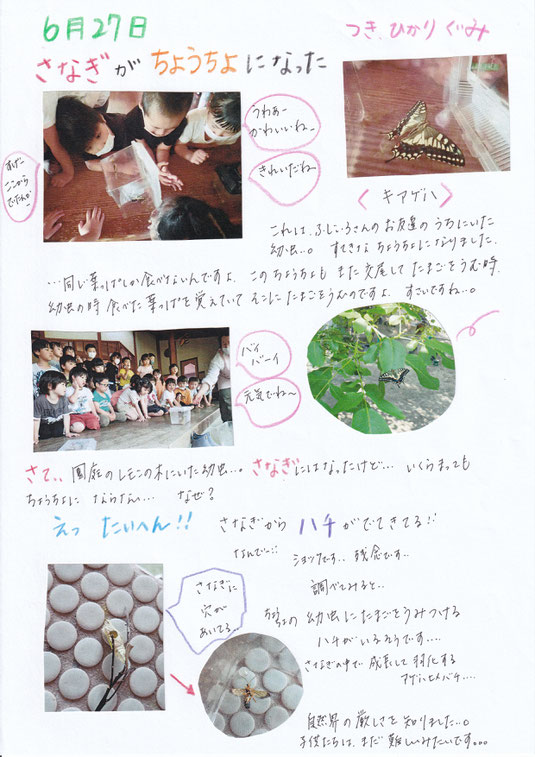 6月27日
つき、ひかりぐみ
さなぎがちょうちょになった
うわぁー
かわいいね〜
きれいだね〜
ここから
でたんだ
〈 キアゲハ 〉
これは、ふじいろさんのお友達のうちにいた
幼虫…。すてきなちょうちょになりました。
…同じ葉っぱしか食べないんですよ。このちょうちょもまた交尾してたまごをうむ時、
幼虫の時食べた葉っぱを覚えていてそこにたまごをうむのですよ。すごいですね…。
バイ
バーイ
元気でね〜
さて、、園庭のレモンの木にいた幼虫…。さなぎにはなったけど… いくらまっても
ちょうちょにならない… なぜ?
えっ たいへん!! さなぎからハチがでてきてる!!
なんでー!!
ショックです.. 残念です..
調べてみると..
さなぎに
穴が
あいてる
ちょうちょの幼虫にたまごをうみつける
ハチがいるそうです....
さなぎの中で成長して羽化する
アゲハヒメバチ....
自然界の厳しさを知りました…。
子供たちは、まだ難しいみたいです。。。